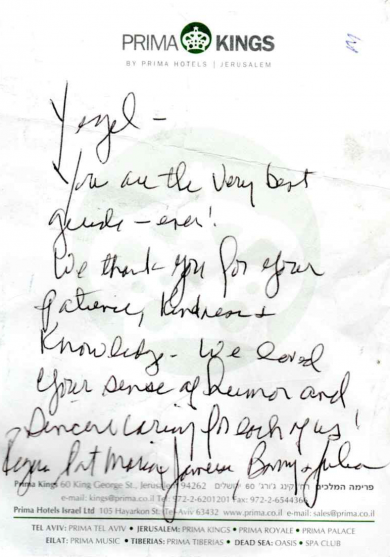 PRIMA KINGS
BY PRIMA HOTELS | JERUSALEM
You are the very best
guide - ever!
We thank you for your
patience, kindness &
Knowledge - We loved
your sense of humor and
Sincere caring for each of us!
Pat Maria
Prima Kings 60 King George St., Jerusalem 94262 פרימה המלכים רח' קינג ג'ורג' 60 ירושלים
e-mail: kings@prima.co.il Tel: 972-2-6201201 Fax: 972-2-6544366
Prima Hotels Israel Ltd 105 Hayarkon St. Tel-Aviv 63432 www.prima.co.il e-mail: sales@prima.co.il
TEL AVIV: PRIMA TEL AVIV • JERUSALEM: PRIMA KINGS • PRIMA ROYALE • PRIMA PALACE
EILAT: PRIMA MUSIC • TIBERIAS: PRIMA TIBERIAS • DEAD SEA: OASIS • SPA CLUB